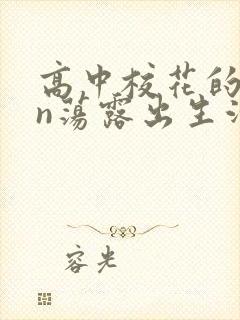 高中校花的
n荡露出生活
容光